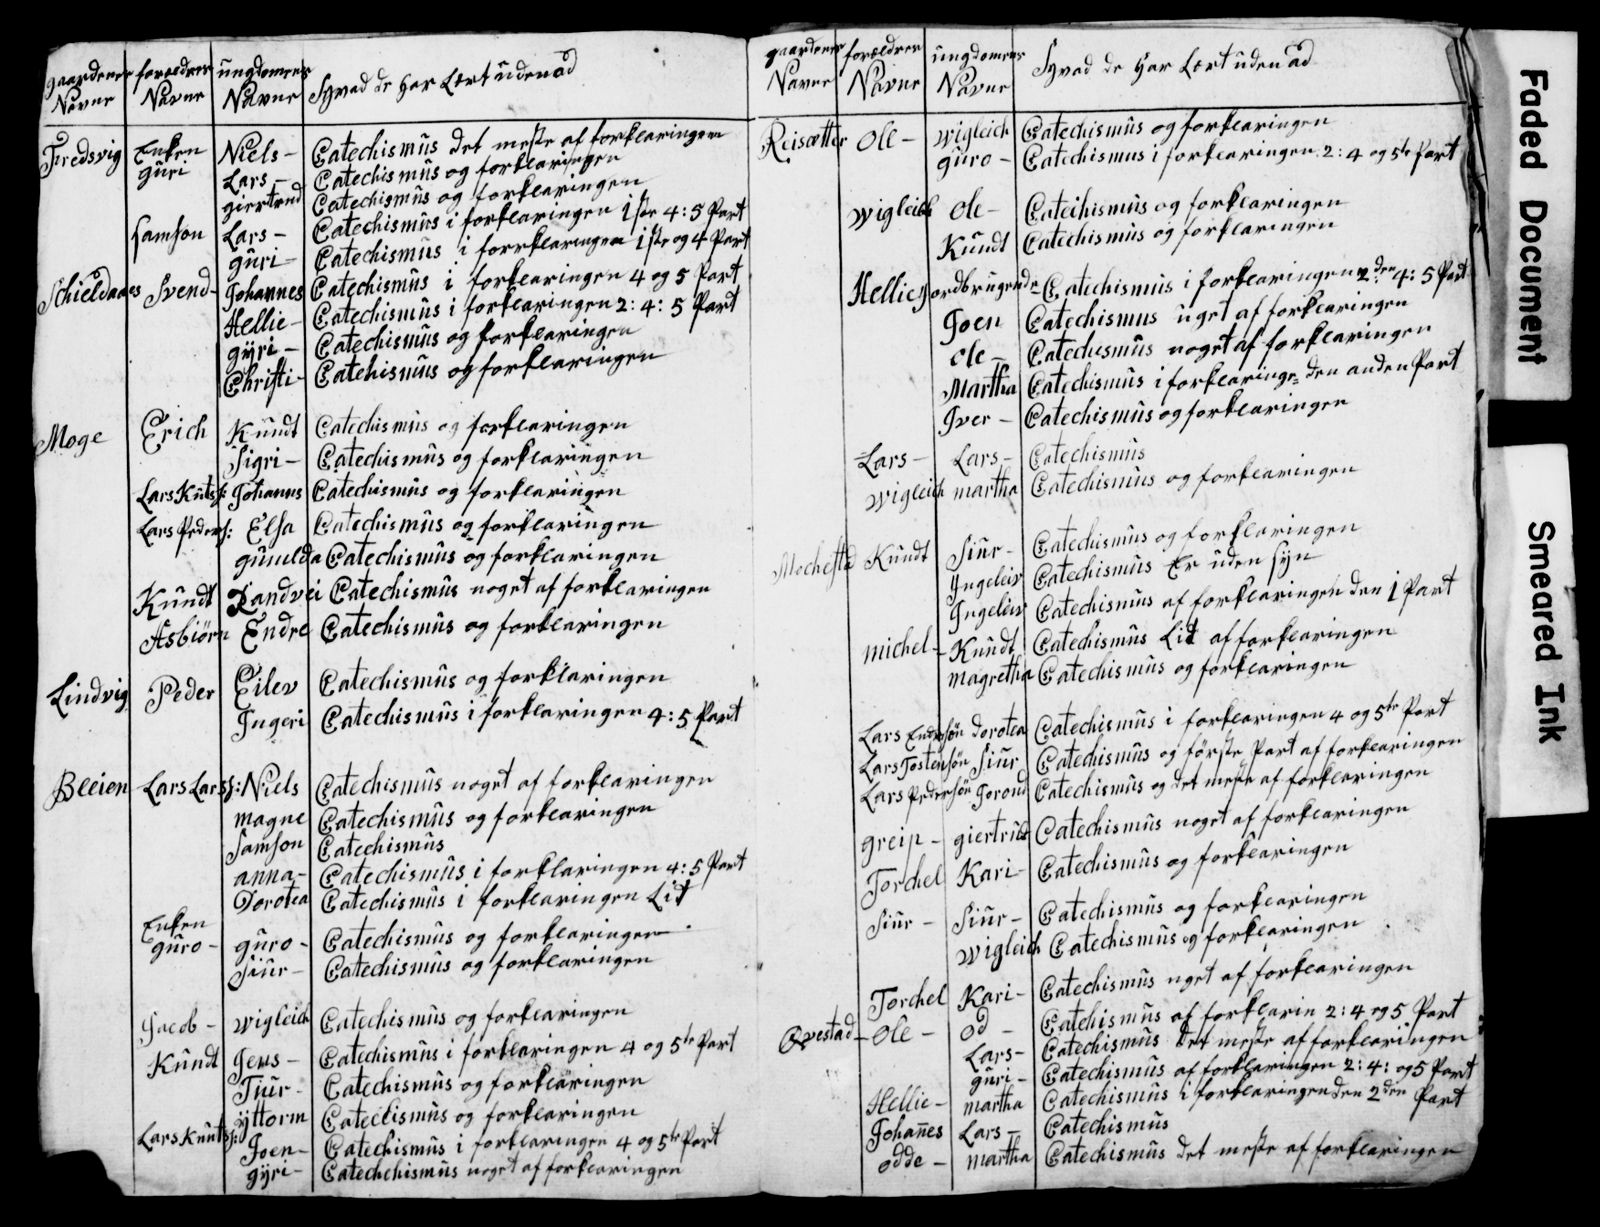 gaardenes Navne | forældres Navne | ungdomens Navne | Hvad de Har Lert uden ad
Tredsvig | Enken guri | Niels - | Catechismus det meste af forklaringen
Lars - | Catechismus og forklaringen
giertrud | Catechismus og forklaringen
Samson | Lars - | Catechismus i forklaringen 1ste 4: 5 Part
guri - | Catechismus i forrklaringen 1ste og 4 Part
Schieldaaes | Svend - | Johannes | Catechismus i forklaringen 4 og 5 Part
Hellie - | Catechismus i forklaringen 2: 4: 5 Part
gÿri - | Catechismus og forklaringen
Christi - | Catehismus og forklaringen
Moge | Erich | Kundt | Catechismus og forklaringen
Sigri - | Catechismus og forklaringen
Lars Kuts: | Johanns | Catechismus og forklaringen
Lars Peders: | Elsa | Catechismus og forklaringen
gunilda | Catechismus og forklaringen
Kundt | Randvei | Catechismus noget af forklaringen
Asbiørn | Endre | Catechismus og forklaringen
Lindvig | Peder | Eilev | Catechismus og forklaringen
Ingeri | Catechismus i forklaringen 4: 5 Part
Bleien | Lars Lars: | Niels | Catechismus noget af forklaringen
magne | Catechismus og forklaringen
Samson | Catechismus
anna - | Catechismus i forklaringen 4: 5 Part
Dorotea | Catechismus i forklaringen Lid
Enken guro - | guro - | Catechismus og forklaringen
Siur - | Catechismus og forklaringen
Jacob - | wigleich | Catechismus og forklaringen
Kundt | Jens - | Catechismus i forklaringen 4 og 5te Part
Tiur - | Catechismus og forklaringen
ÿttorm | Cateclismus og forklaringen
Lars Knuts: | Joen - | Catechismus i forklaringen 4 og 5te Part
gÿri - | Catechchismus noget af forklaringen
gaardenes Navne | forældres Navne | ungdomens Navne | Hvad de Har Lert uden ad
Reisætter | Ole - | wigleich | Catechismus og forklaringen
guro - | Catechismus i forklaringen 2: 4 og 5te Part
wigleich | Ole - | Catechismus og forklaringen
Kundt | Catechismus og forklaringen
Hellie | Jordbrugende - | Catechismus i forklaringen 2den 4: 5 Part
Joen | Catechismus uget af forklaringen
ole - | Catechesmus noget af forklaringen
Martha | Catechismus i forklaringe= den anden Part
Iver - | Catechismus og forklaringen
Lars - | Lars - | Catechismus
wigleich | martha | Catechismus og forklaringen
Mochestd | Kundt | Siur - | Catechismus og forklaringen
Yngeleiv | Catechismus Er uden syn
Ingeleiv | Catechismus af forklaringen den 1 Part
michel - | Kundt | Catechismus Lid af forklaringen
magretha | Catechismus og forklaringen
Lars Endersön | dorotea | Catechismus i forklaringen 4 og 5te Part
Lars Tostensön | Siur | Catechismus og förste Part af forklaringen
Lars Pedersön | Jorond | Catechismus og det meste af forklaringen
greip - | giertrud | Catechismus noget af forklaringen
Torchel | Kari - | Catechismus og forklaringen
Siur - | Siur - | Catechismus og forklaringen
wigleich | Catechismus og forklaringen
Torchel | Kari - | Catechismus nget af forklaringen
Qvestad - | Ole - | od - | Catechismus af forklarin 2: 4 og 5 Part
Lars - | Catechismus det meste af forklaringen
guri - | Catechismus af forklaringen 2: 4: og 5 Part
Hellie - | martha | Catechismus i forklaringen den 2den Part
Johanes | Lars - | Catechismus
odde - | martha | Catechismus det meste af forklaringen
Faded Document
Smeared Ink